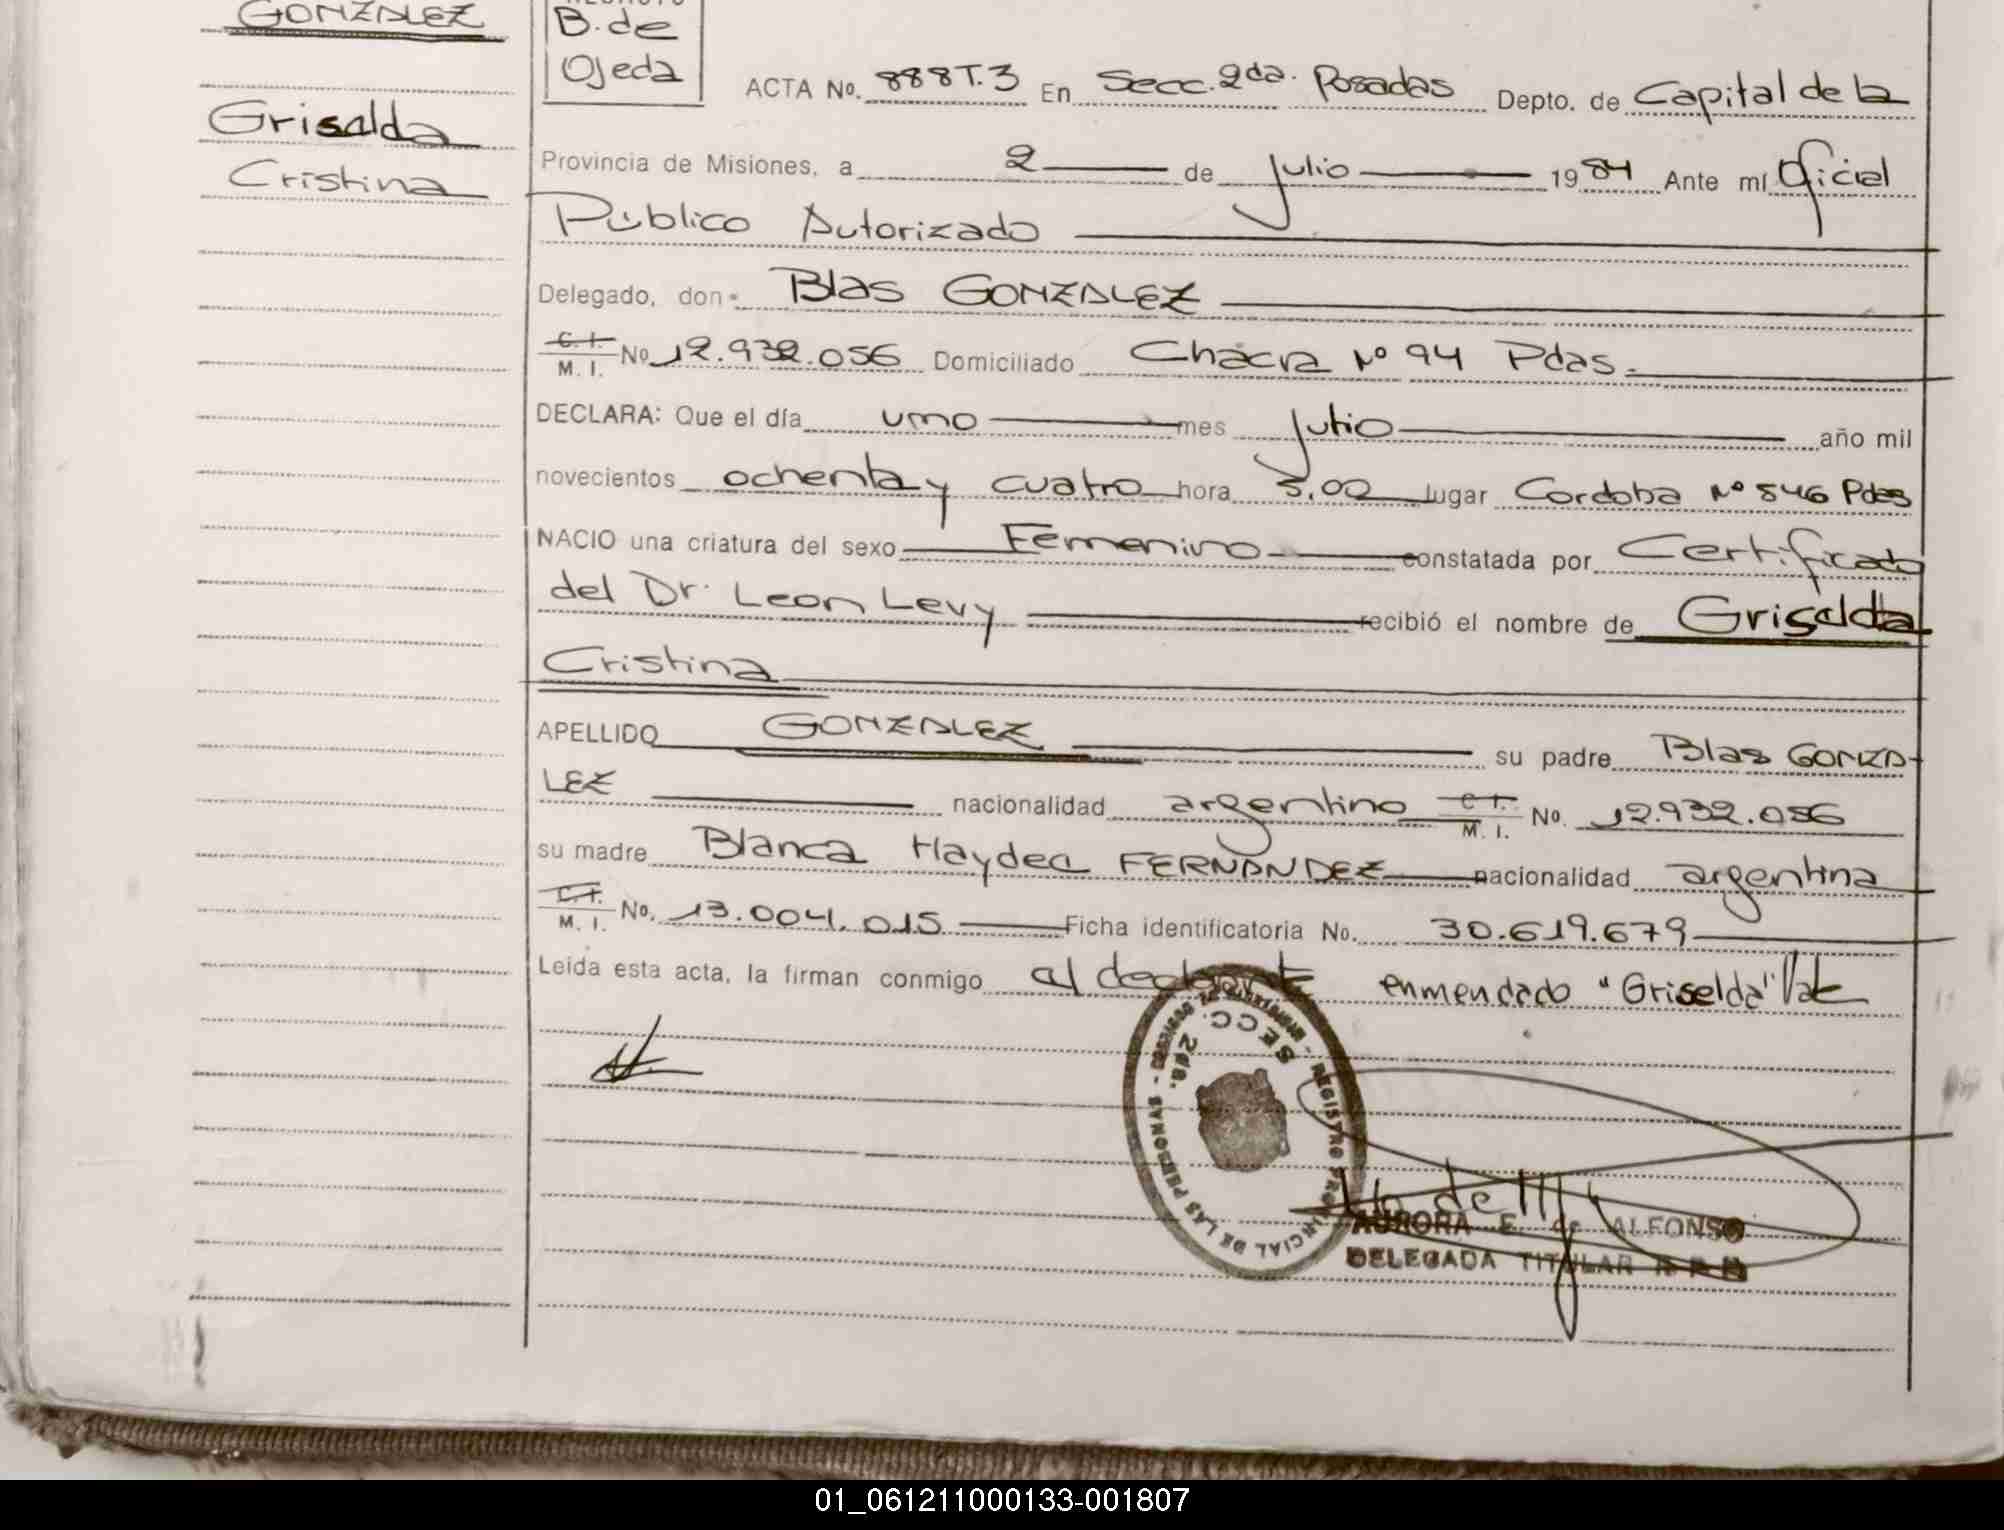 GONZALEZ
Griselda
Cristina
B. de
Ojeda
ACTA No. 888 T. 3 En Secc. 2da. Posadas Depto. de Capital de la
Provincia de Misiones, a 2 de Julio 1984 Ante mí Oficial
Público Autorizado
Delegado, don Blas GONZALEZ
C. I. / M. I. No 12.932.056 Domiciliado Chacra Nº 94 Pdas.
DECLARA: Que el día uno mes Julio año mil
novecientos ochenta y cuatro hora 3,00 lugar Cordoba Nº 846 Pdas
NACIO una criatura del sexo Femenino constatada por Certificado
del Dr. Leon Levy recibió el nombre de Griselda
Cristina
APELLIDO GONZALEZ su padre Blas GONZA-
LEZ nacionalidad argentino C. I. / M. I. No. 12.932.056
su madre Blanca Haydee FERNANDEZ nacionalidad argentina
C. I. / M. I. No. 13.004.015 Ficha identificatoria No. 30.619.679
Leída esta acta, la firman conmigo al declarante enmendado "Griselda" Vale
REGISTRO PROVINCIAL DE LAS PERSONAS
SECC. 2da.
AURORA E. de ALFONSO
DELEGADA TITULAR
01_061211000133-001807